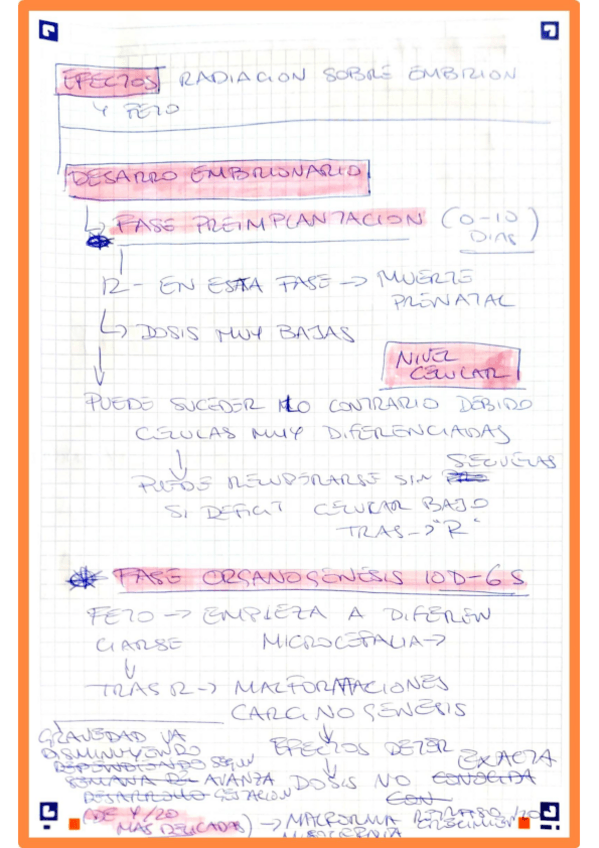 EFECTOS RADIACION SOBRE EMBRION
Y FETO
DESARRO EMBRIONARIO
FASE PREIMPLANTACION (0-10
DIAS)
R - EN ESTA FASE -> MUERTE
PRENATAL
DOSIS MUY BAJAS
NIVEL
CELULAR
PUEDE SUCEDER LO CONTRARIO DEBIDO
CELULAS MUY DIFERENCIADAS
SECUELAS
PUEDE RECUPERARSE SIN
SI DEFICIT CELULAR BAJO
TRAS -> "R"
* FASE ORGANOGENESIS 10D-6S
FETO -> EMPIEZA A DIFEREN
CIARSE MICROCEFALIA ->
TRAS R -> MALFORMACIONES
CARCINOGENESIS
GRAVEDAD VA
DISMINUYENDO
DEPENDIENDO SEGUN
SEMANA DE AVANZA
DESARROLLO GESTACION
EFECTOS DETER
EXACTA
DOSIS NO CONOCIDA
CON
MAS DELICADAS) ->